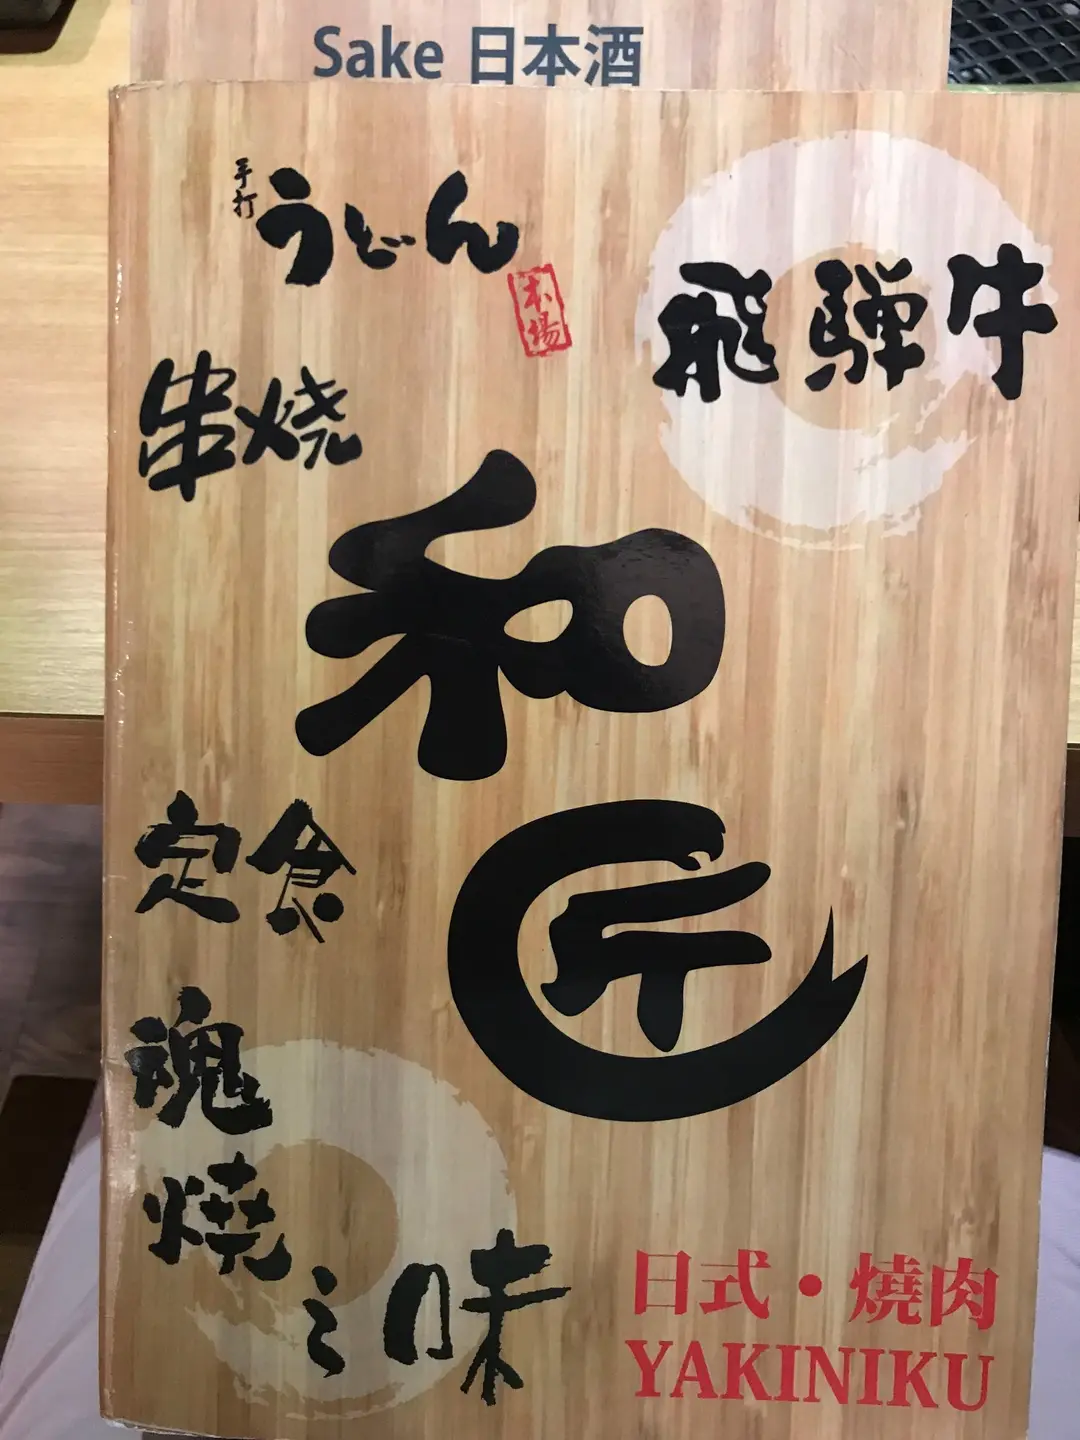 Sake 日本酒
手打
うどん
本場
飛騨牛
串焼
和
匠
定食
魂
燒
之味
日式・燒肉
YAKINIKU